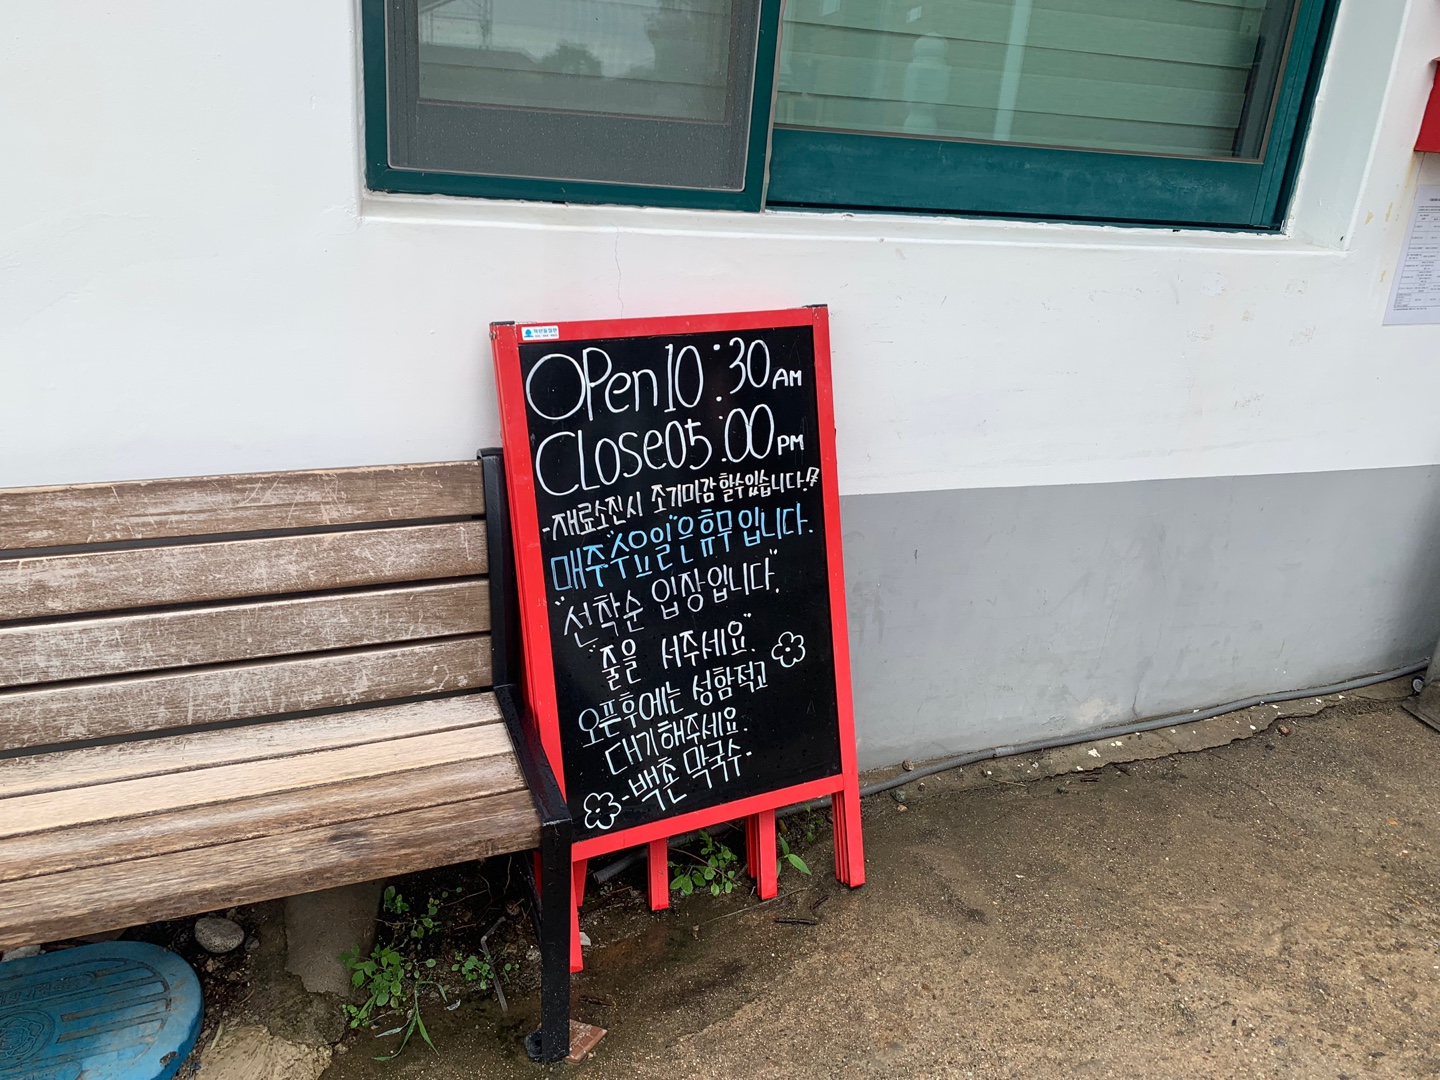 OPen 10:30 AM
CLose 05:00 PM
-재료소진시 조기마감 할수있습니다!!
매주"수요일"은 휴무입니다.
"선착순 입장입니다."
"줄을 서주세요."
오픈후에는 성함적고
대기해주세요.
-백촌 막국수-